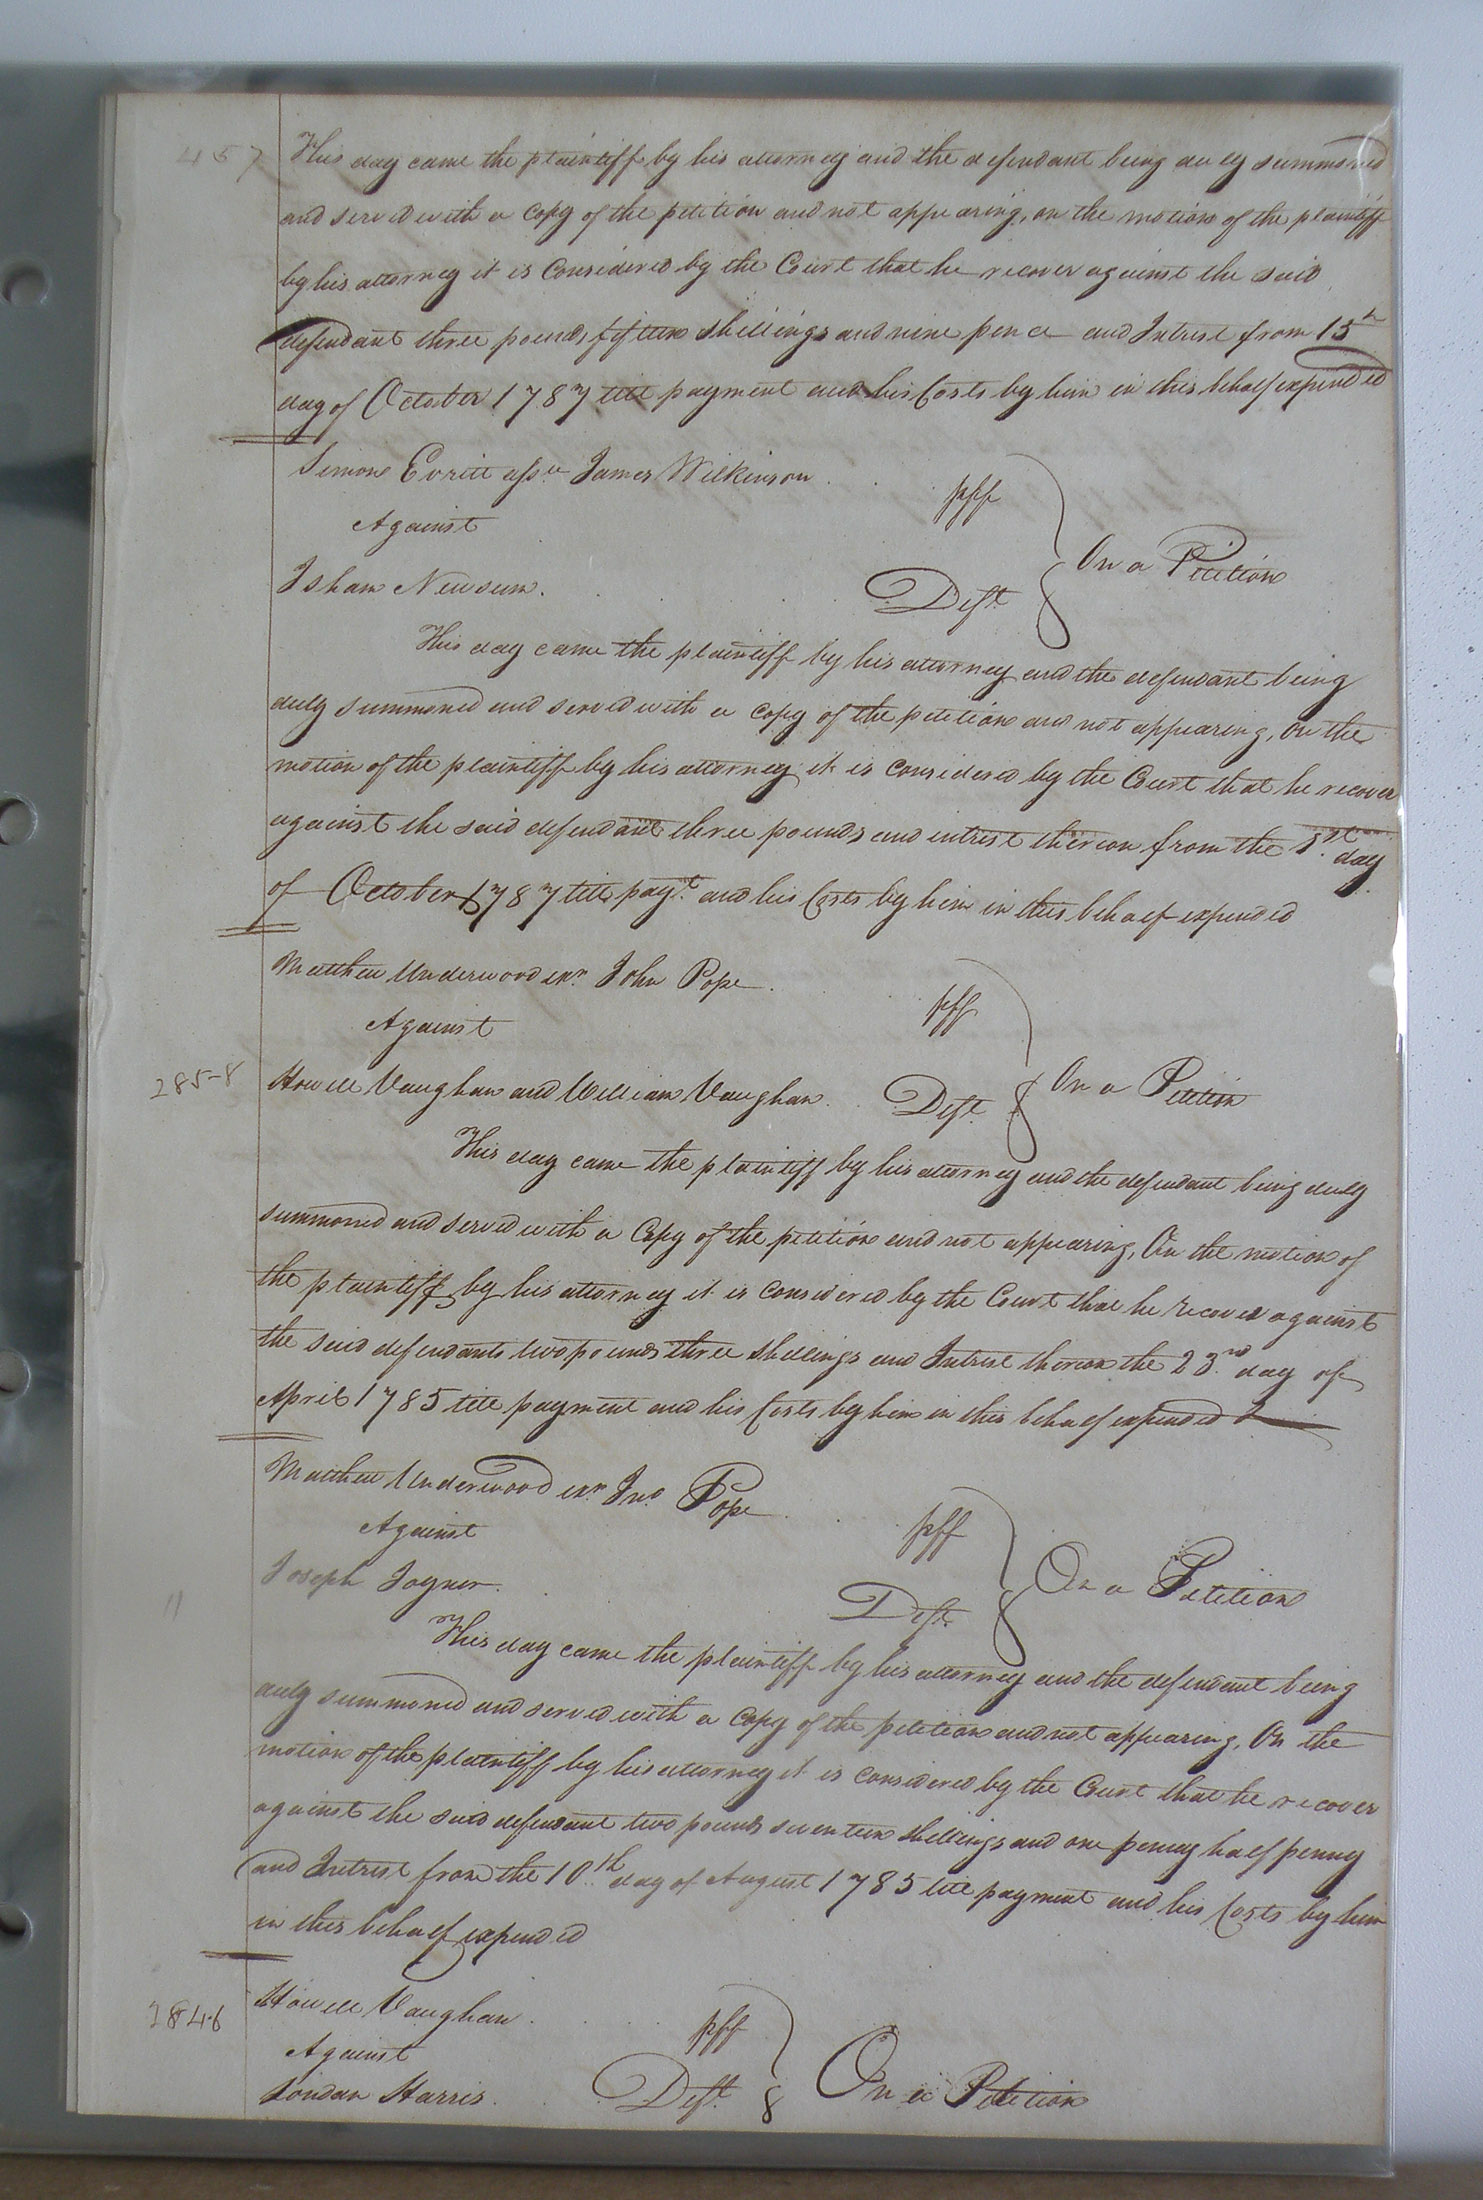 457 This day came the plaintiff by his attorney and the defendant being duly summoned
and served with a Copy of the petition and not appearing, on the motion of the plaintiff
by his attorney it is Considered by the Court that he recover against the said
defendant three pounds fifteen shillings and nine pence and Intrest from 15th
day of October 1787 till payment and his Costs by him in this behalf expended
Simon Evritt assee James Wilkinson . . pff
Against
On a Petition
Isham Newsum. . . Deft
This day came the plaintiff by his attorney and the defendant being
duly summoned and served with a Copy of the petition and not appearing, On the
motion of the plaintiff by his attorney it is Considered by the Court that he recover
against the said defendant three pounds and intrest thereon from the 1st day
of October 1787 till payt. and his Costs by him in this behalf expended
Matthew Underwood exr. John Pope . . pff
Against
285-8 Howell Vaughan and William Vaughan . . Deft. On a Petition
This day came the plaintiff by his attorney and the defendant being duly
summoned and served with a Copy of the petition and not appearing, On the motion of
the plaintiff by his attorney it is Considered by the Court that he recover against
the said defendants two pounds three shillings and Intrest thereon the 23rd day of
April 1785 till payment and his Costs by him in this behalf expended
Matthew Underwood exr. Jno. Pope . . pff
Against
On a Petition
11 Joseph Joyner. . Deft.
This day came the plaintiff by his attorney and the defendant being
duly summoned and served with a Copy of the petition and not appearing, On the
motion of the plaintiff by his attorney it is Considered by the Court that he recover
against the said defendant two pounds seventeen shillings and one penny half penny
and Intrest from the 10th day of August 1785 till payment and his Costs by him
in this behalf expended
2846 Howell Vaughan . . pff
Against
On a Petition
Harris. . Deft.